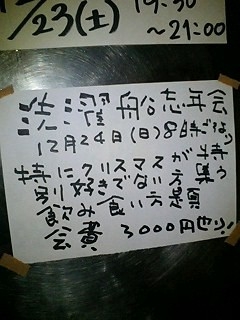 /23(土) 19:30
~21:00
船忘年会
12月24日(日)8時ごろ
特にクリスマスが特
別に好きでない方集う
飲み食い方題
会費 3000円也